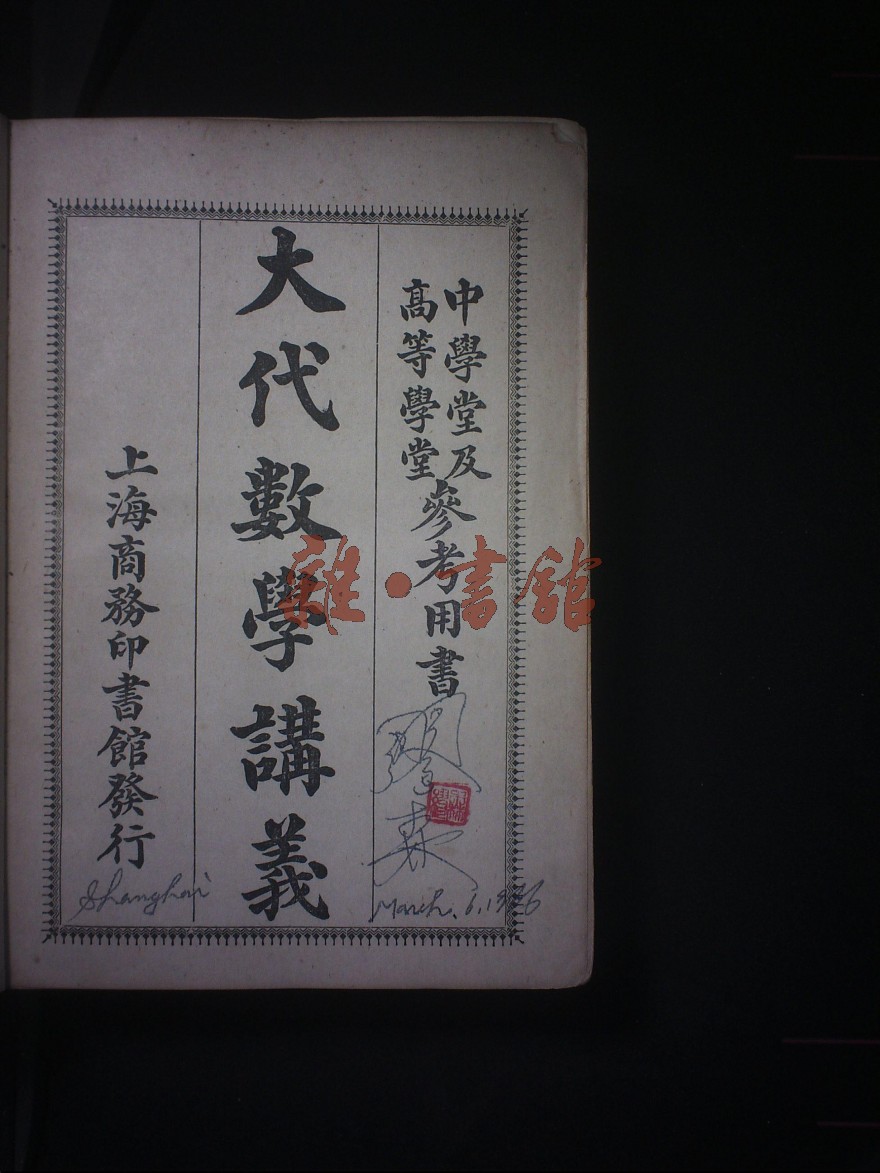 中學堂及
高等學堂
參考用書
大代數學講義
上海商務印書館發行
Shanghai
March. 6. 1926
雜·書館